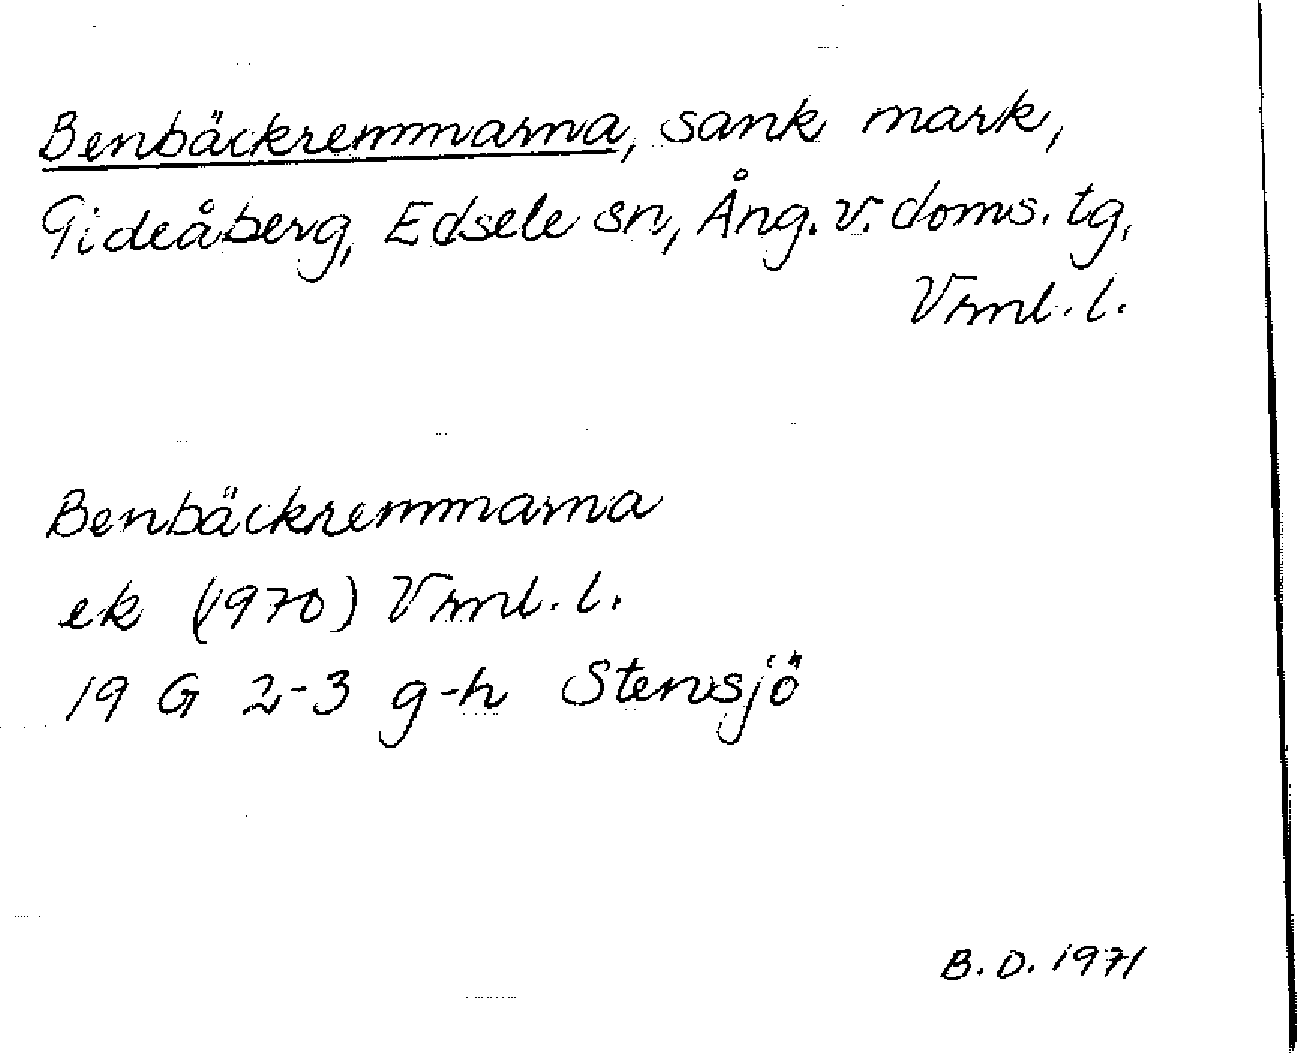 Benbäckremmarna, sank mark,
Gideåberg, Edsele sn, Ång. v. doms. tg,
Vrml. l.
Benbäckremmarna
ek (1970) Vrml. l.
19 G 2-3 g-h Stensjö
B. D. 1971